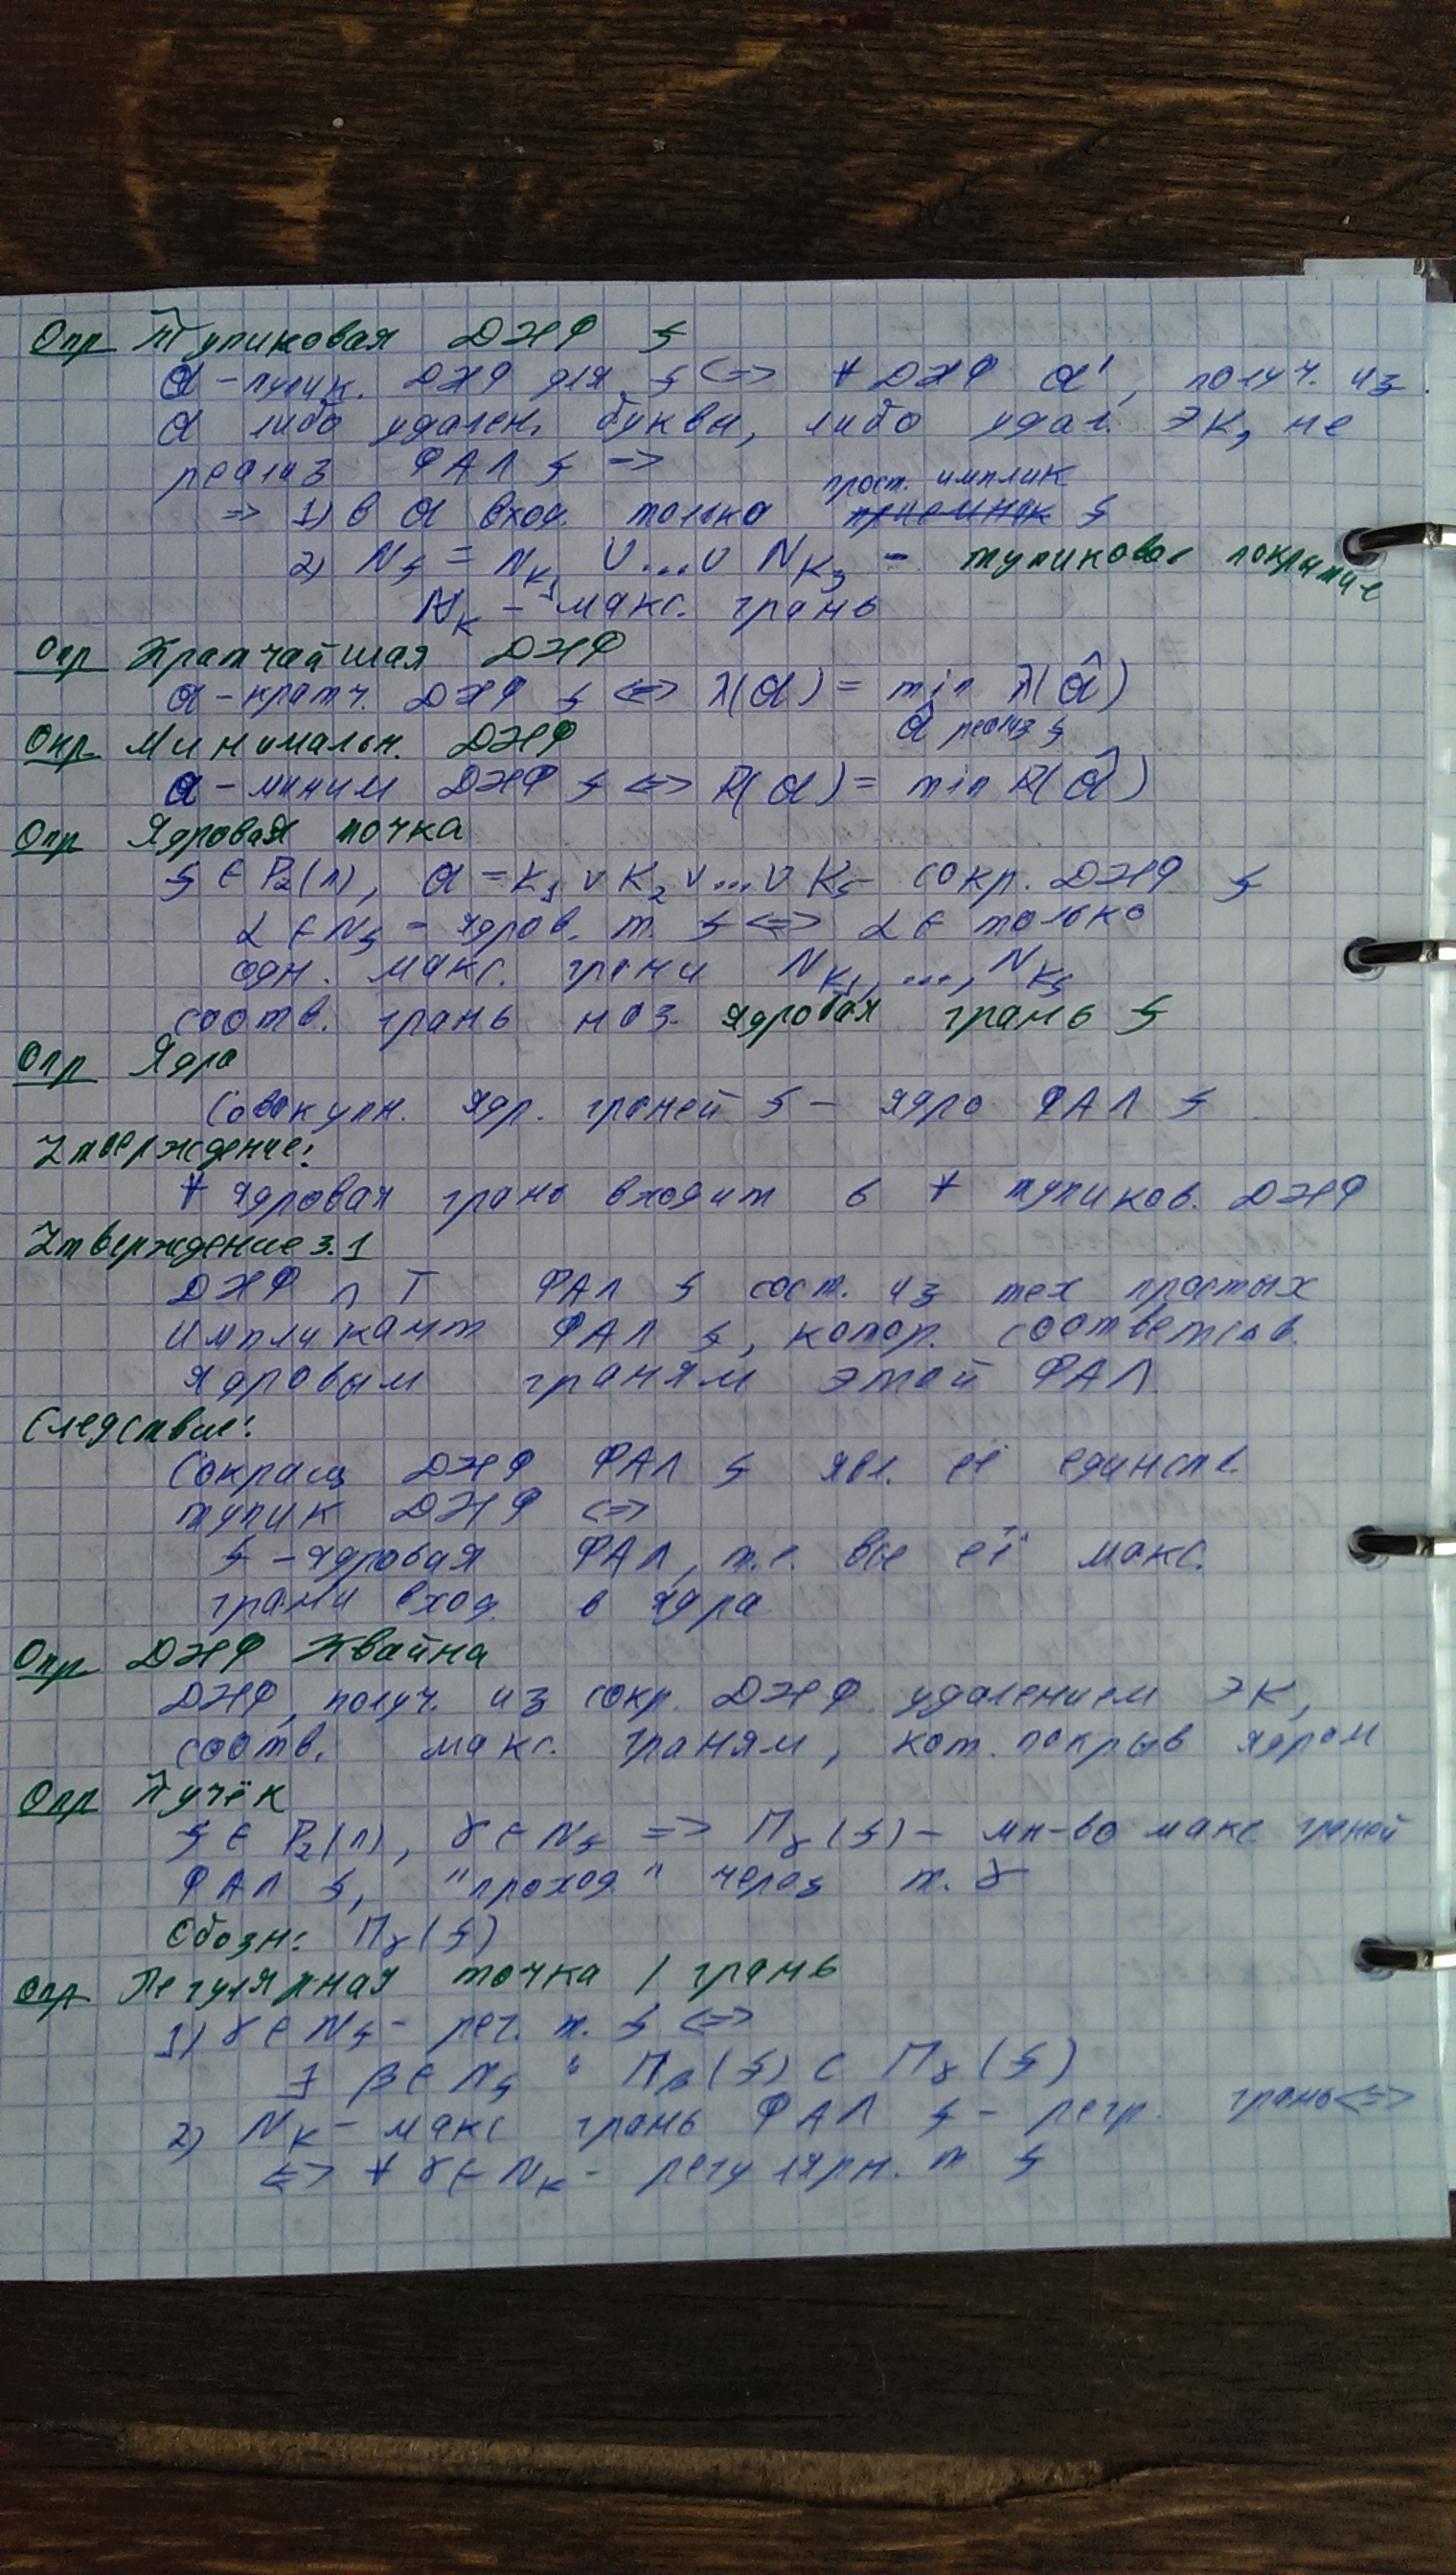 Опр Тупиковая ДНФ f
α - тупик. ДНФ для f <=> ∀ ДНФ α', получ. из
α либо удален. буквы, либо удал. ЭК, не
реализ ФАЛ f =>
прост. имплик
=> 1) в α вход. только f
2) N_f = N_K1 ∪...∪ N_Ks - тупиковое покрытие
N_K - макс. грань
Опр Кратчайшая ДНФ
α - кратч. ДНФ f <=> λ(α) = min λ(α̂)
α̂ реализ f
Опр Минимальн. ДНФ
α - миним ДНФ f <=> R(α) = min R(α̂)
Опр Ядровая точка
f ∈ P₂(n), α = K₁ ∨ K₂ ∨...∨ Ks - сокр. ДНФ f
α ∈ N_f - ядров. т. f <=> α ∈ только
одн. макс. грани N_K1, ..., N_Ks
соотв. грань наз. ядровая грань f
Опр Ядро
Совокупн. ядр. граней f - ядро ФАЛ f
Утверждение:
∀ ядровая грань входит в ∀ тупиков. ДНФ
Утверждение 3.1
ДНФ ∩ T ФАЛ f сост. из тех простых
импликант ФАЛ f, котор. соответств.
ядровым граням этой ФАЛ.
Следствие:
Сокращ ДНФ ФАЛ f явл. её единств.
тупик ДНФ <=>
f - ядровая ФАЛ, т.е. все её макс.
грани вход. в ядра
Опр ДНФ Квайна
ДНФ, получ. из сокр. ДНФ удалением ЭК,
соотв. макс. граням, кот. покрыв ядром
Опр Пучёк
f ∈ P₂(n), γ ∈ N_f => Π_γ(f) - мн-во макс граней
ФАЛ f, "проход" через т. γ
Обозн: Π_γ(f)
Опр Регулярная точка / грань
1) γ ∈ N_f - рег. т. f <=>
∃ β ∈ N_f : Π_β(f) ⊂ Π_γ(f)
2) N_K - макс грань ФАЛ f - регр. грань <=>
<=> ∀ γ ∈ N_K - регулярн. т f